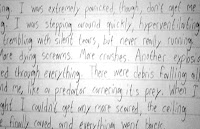 ing. I was extremely panicked though, don't get me
g. I was stepping around quickly, hyperventilating
trembling with silent tears, but never really running.
More dying screams. More crashes. Another explosio
ed through everything. There were debris falling all
nd me, like a predator cornering its prey. When I
ght I couldn't get any more scared, the ceiling
finally caved, and everything went black.